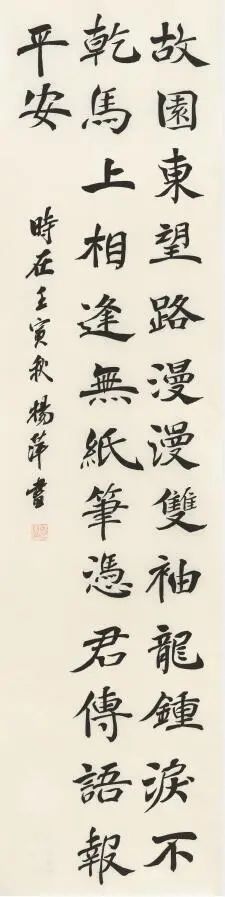 故園東望路漫漫雙袖龍鍾淚不
乾馬上相逢無紙筆憑君傳語報
平安
時在壬寅秋楊萍書